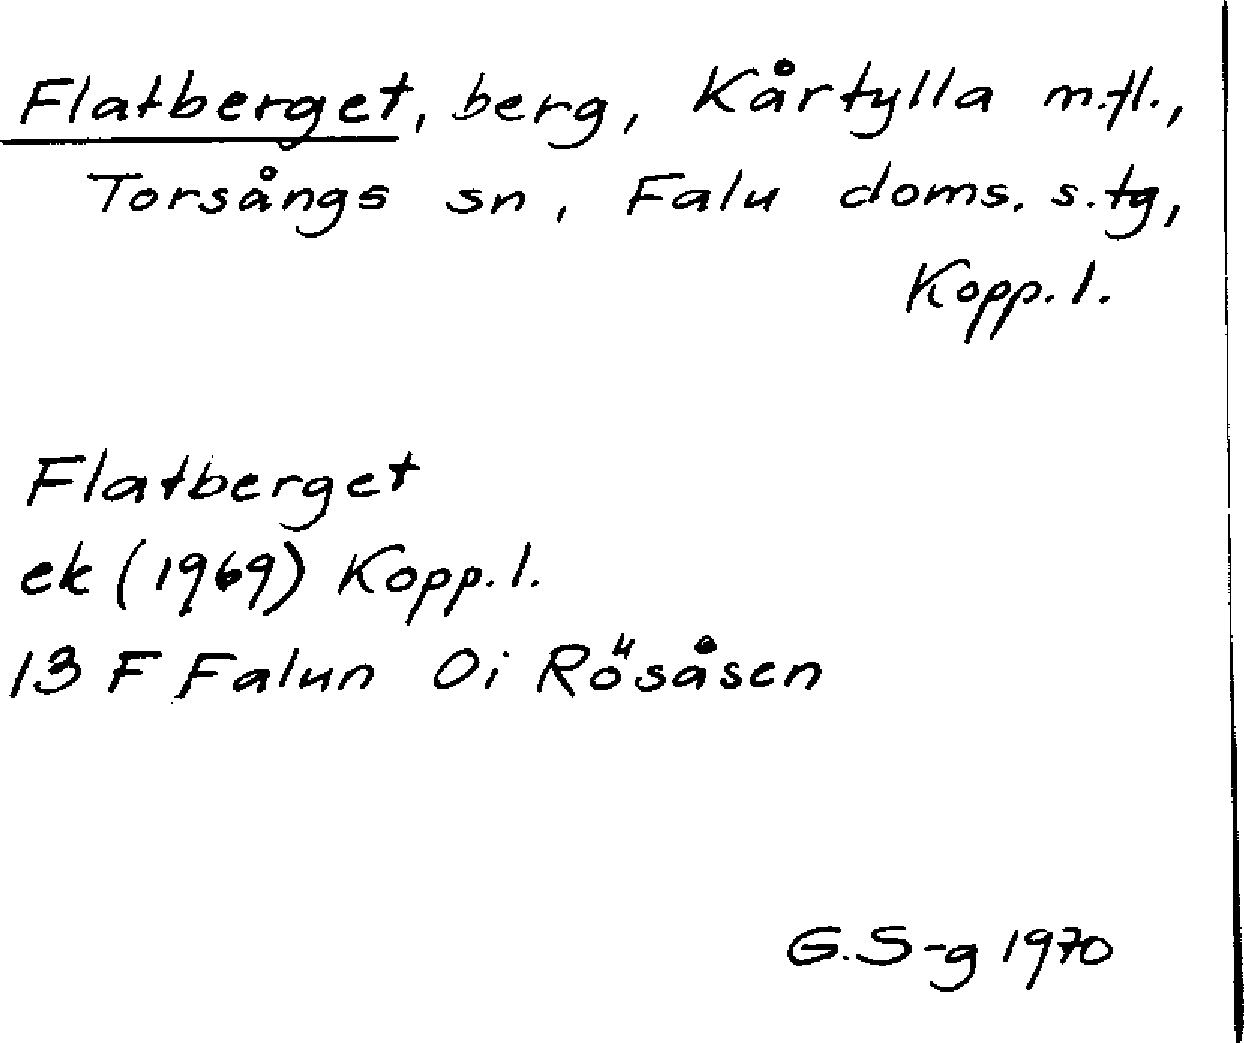 Flatberget, berg, Kårtylla m.fl.,
Torsångs sn, Falu doms. s. tg,
Kopp. l.
Flatberget
ek (1969) Kopp. l.
13 F Falun 0i Rösåsen
G.S-g 1970